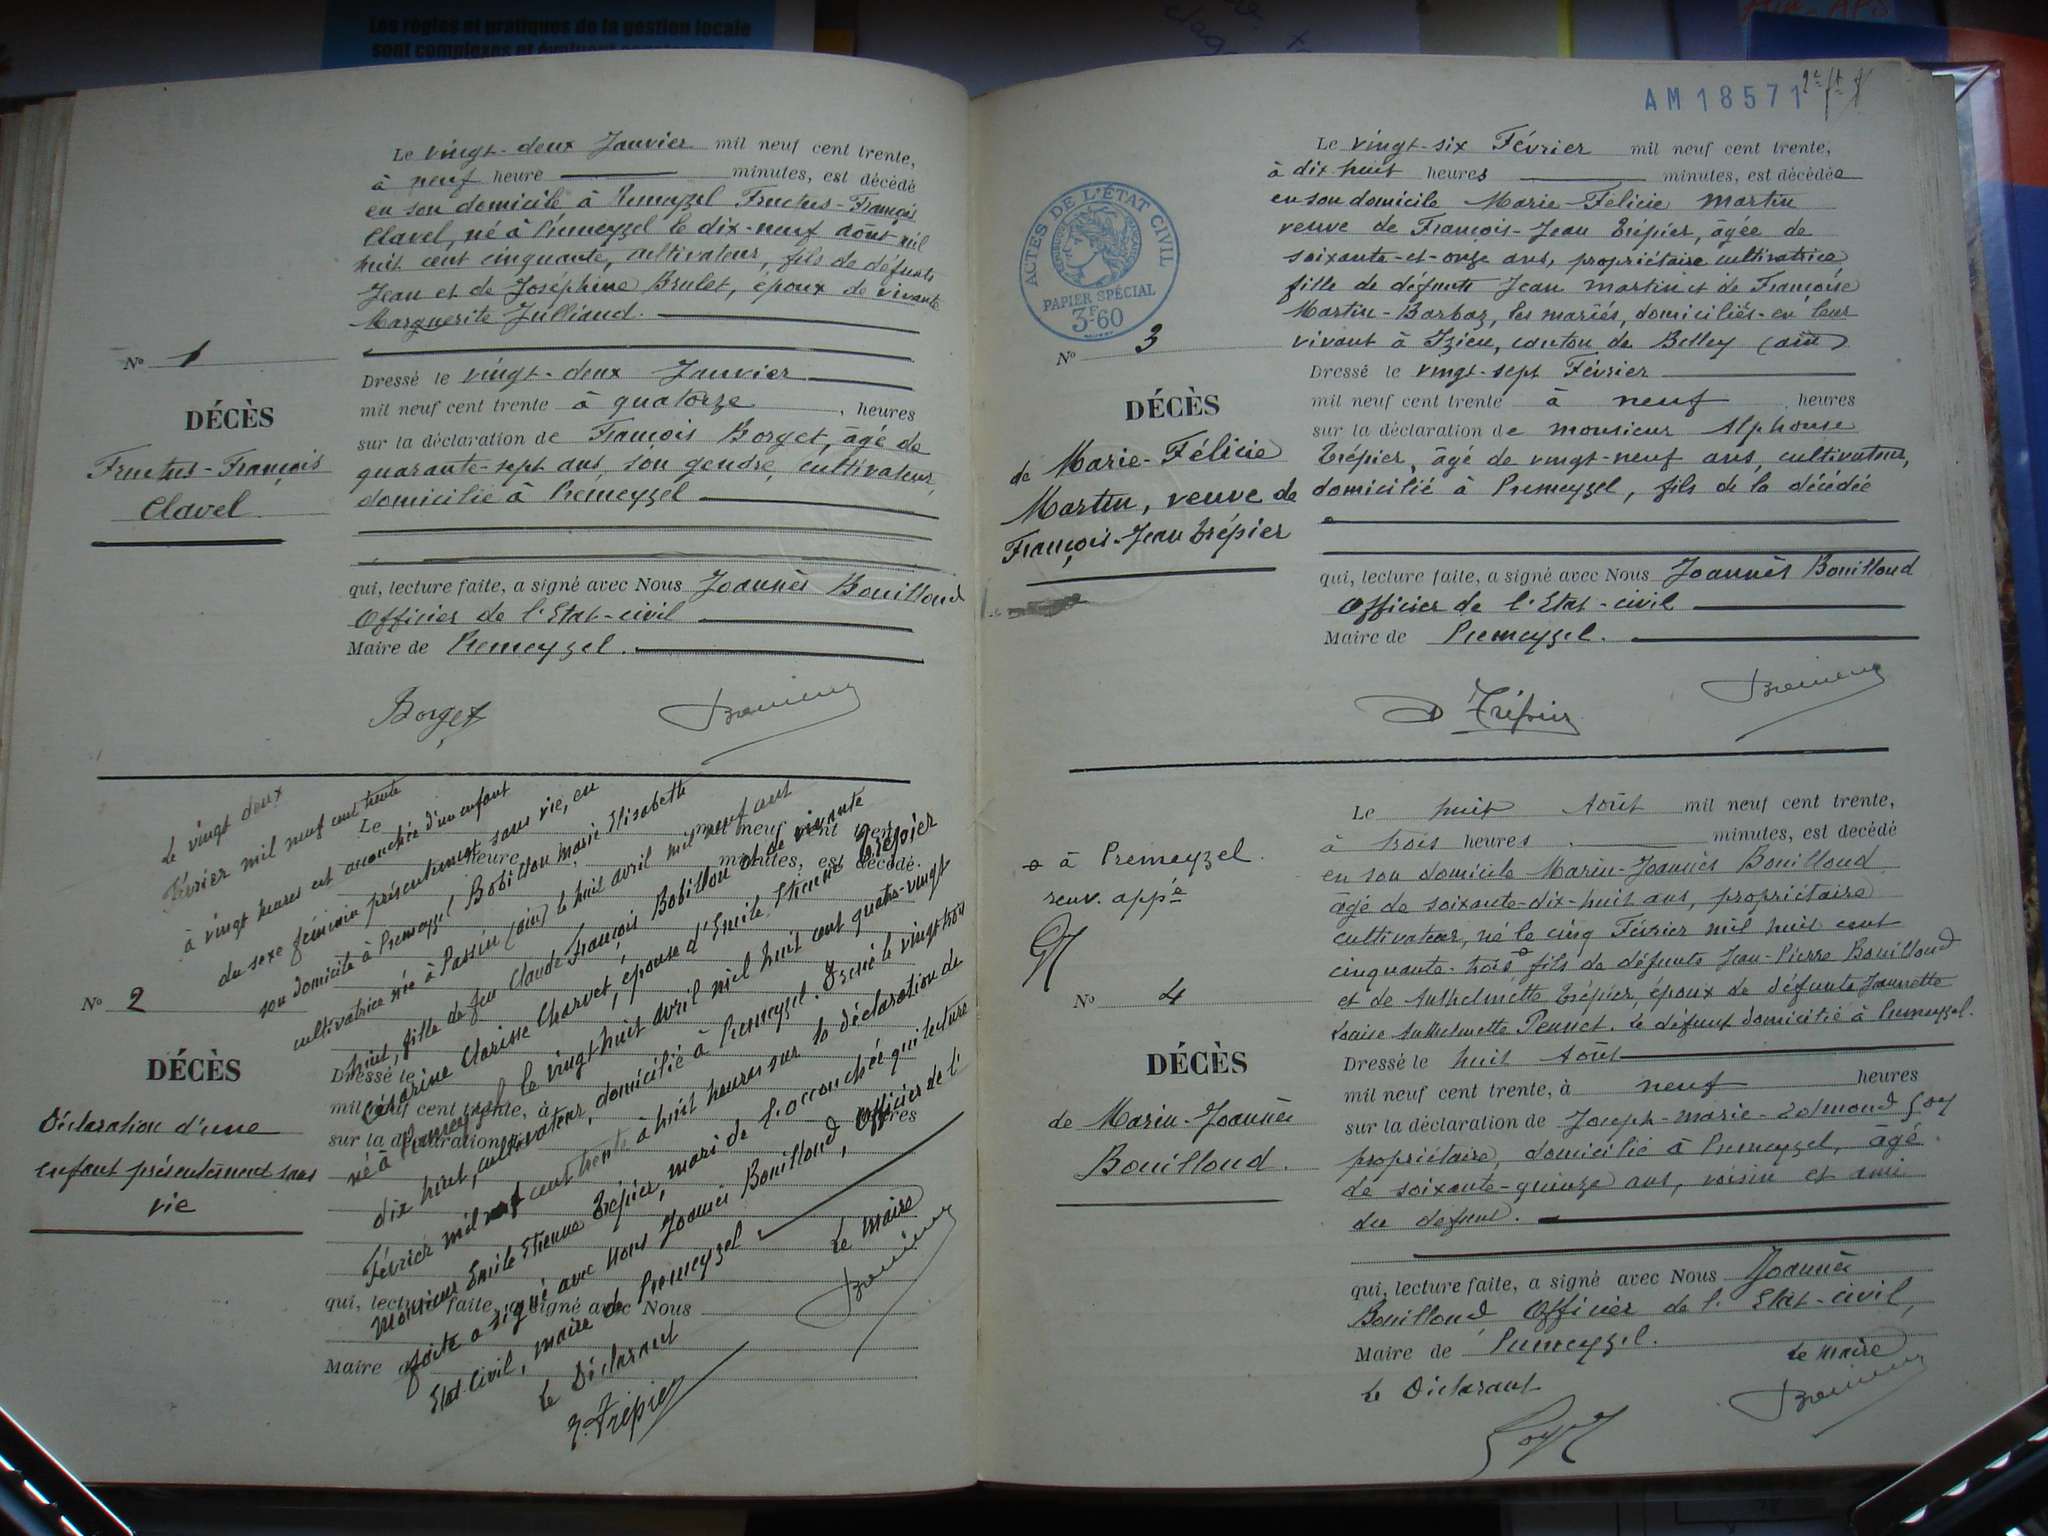 Les règles et pratiques de la gestion locale
sont complexes et évoluent
Le vingt-deux Janvier mil neuf cent trente,
à neuf heure minutes, est décédé
en son domicile à Premeyzel Fructus-François
Clavel, né à Premeyzel le dix-neuf août mil
huit cent cinquante, cultivateur, fils de défunts
Jean et de Joséphine Brulet, époux de vivante
Marguerite Julliand.
Nº 1
DÉCÈS
Fructus-François
Clavel
Dressé le vingt-deux Janvier
mil neuf cent trente à quatorze, heures
sur la déclaration de François Borget, âgé de
quarante-sept ans, son gendre, cultivateur,
domicilié à Premeyzel
qui, lecture faite, a signé avec Nous Joannès Bouilloud
Officier de l'Etat-civil
Maire de Premeyzel.
Borget
Nº 2
DÉCÈS
Déclaration d'une
enfant présentement sans
vie
Le mil neuf cent trente
heure minutes, est décédé
Dressé le
mil neuf cent trente, à heures
sur la déclaration de
qui, lecture faite, a signé avec Nous
Maire de
Le vingt deux
Février mil neuf cent trente
à vingt heures est accouchée d'un enfant
du sexe féminin présentement sans vie, en
son domicile à Premeyzel Bobillon Marie Elisabeth
cultivatrice née à Passin (ain) le huit avril mil neuf cent
huit, fille de feu Claude François Bobillon et de vivante
Césarine Clarisse Charvet, épouse d'Emile Etienne Trépier
né à Premeyzel le vingt huit avril mil huit cent quatre-vingt
dix huit, cultivateur, domicilié à Premeyzel. Dressé le vingt trois
Février mil neuf cent trente à huit heures sur la déclaration de
Monsieur Emile Etienne Trépier, mari de l'accouchée qui lecture
faite a signé avec nous Joannès Bouilloud, Officier de l'
Etat-Civil, maire de Premeyzel
Le Déclarant
Le Maire
E. Trépier
AM 18571
ACTES DE L'ÉTAT CIVIL
PAPIER SPÉCIAL
3F60
Le vingt-six Février mil neuf cent trente,
à dix-huit heures minutes, est décédée
en son domicile Marie-Félicie Martin
veuve de François-Jean Trépier, âgée de
soixante-et-onze ans, propriétaire cultivatrice
fille de défunts Jean Martin et de Françoise
Martin-Barbaz, les mariés, domiciliés en leur
vivant à Izieu, canton de Belley (ain)
Nº 3
DÉCÈS
de Marie-Félicie
Martin, veuve de
François-Jean Trépier
Dressé le vingt-sept Février
mil neuf cent trente à neuf heures
sur la déclaration de monsieur Alphonse
Trépier, âgé de vingt-neuf ans, cultivateur,
domicilié à Premeyzel, fils de la décédée
qui, lecture faite, a signé avec Nous Joannès Bouilloud
Officier de l'Etat-civil
Maire de Premeyzel.
Trépier
Le huit Août mil neuf cent trente,
à trois heures minutes, est decédé
en son domicile Marin-Joannès Bouilloud
âgé de soixante-dix-huit ans, propriétaire
cultivateur, né le cinq Février mil huit cent
cinquante-trois fils de défunts Jean-Pierre Bouilloud
et de Anthelmette Trépier, époux de défunte Jeannette
Louise Anthelmette Peunet. Le défunt domicilié à Premeyzel.
à Premeyzel.
renv. appé
Nº 4
DÉCÈS
de Marin-Joannès
Bouilloud.
Dressé le huit Août
mil neuf cent trente, à neuf heures
sur la déclaration de Joseph-Marie-Edmond Goy
propriétaire, domicilié à Premeyzel, âgé
de soixante-quinze ans, voisin et ami
du défunt.
qui, lecture faite, a signé avec Nous Joannès
Bouilloud Officier de l'Etat-civil,
Maire de Premeyzel.
Le Déclarant
Le Maire
Goy